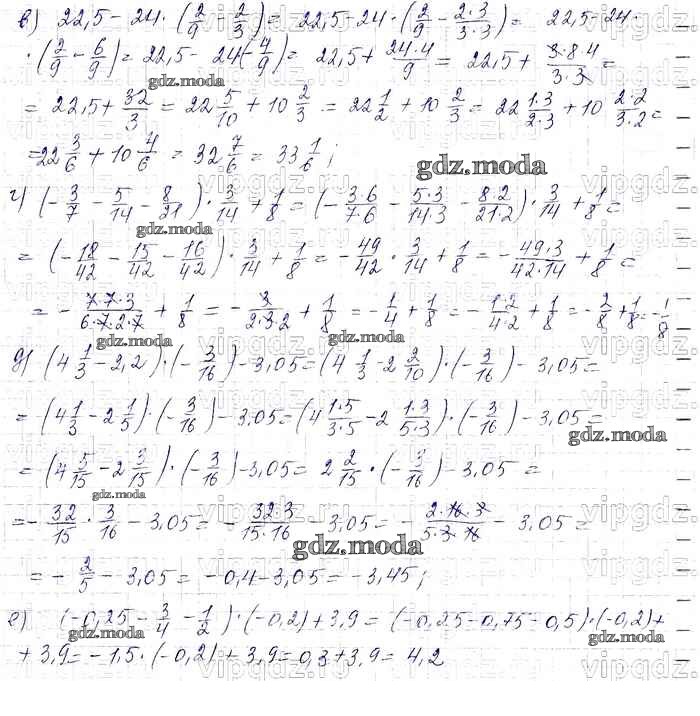 в) 22,5 - 24 · (2/9 - 2/3) = 22,5 - 24 · (2/9 - 2·3/3·3) = 22,5 - 24 ·
· (2/9 - 6/9) = 22,5 - 24(-4/9) = 22,5 + 24·4/9 = 22,5 + 3·8·4/3·3 =
gdz.moda
= 22,5 + 32/3 = 22 5/10 + 10 2/3 = 22 1/2 + 10 2/3 = 22 1·3/2·3 + 10 2·2/3·2 =
= 22 3/6 + 10 4/6 = 32 7/6 = 33 1/6;
gdz.moda
г) (-3/7 - 5/14 - 8/21) · 3/14 + 1/8 = (-3·6/7·6 - 5·3/14·3 - 8·2/21·2) · 3/14 + 1/8 =
gdz.moda
= (-18/42 - 15/42 - 16/42) · 3/14 + 1/8 = -49/42 · 3/14 + 1/8 = -49·3/42·14 + 1/8 =
= -7·7·3/6·7·2·7 + 1/8 = -3/2·3·2 + 1/8 = -1/4 + 1/8 = -1·2/4·2 + 1/8 = -2/8 + 1/8 = -1/8
gdz.moda
д) (4 1/3 - 2,2) · (-3/16) - 3,05 = (4 1/3 - 2 2/10) · (-3/16) - 3,05 =
= (4 1/3 - 2 1/5) · (-3/16) - 3,05 = (4 1·5/3·5 - 2 1·3/5·3) · (-3/16) - 3,05 =
gdz.moda
= (4 5/15 - 2 3/15) · (-3/16) - 3,05 = 2 2/15 · (-3/16) - 3,05 =
gdz.moda
= -32/15 · 3/16 - 3,05 = -32·3/15·16 - 3,05 = -2·16·3/5·3·16 - 3,05 =
gdz.moda
= -2/5 - 3,05 = -0,4 - 3,05 = -3,45;
е) (-0,25 - 3/4 - 1/2) · (-0,2) + 3,9 = (-0,25 - 0,75 - 0,5) · (-0,2) +
gdz.moda
gdz.moda
+ 3,9 = -1,5 · (-0,2) + 3,9 = 0,3 + 3,9 = 4,2
vipgdz.ru